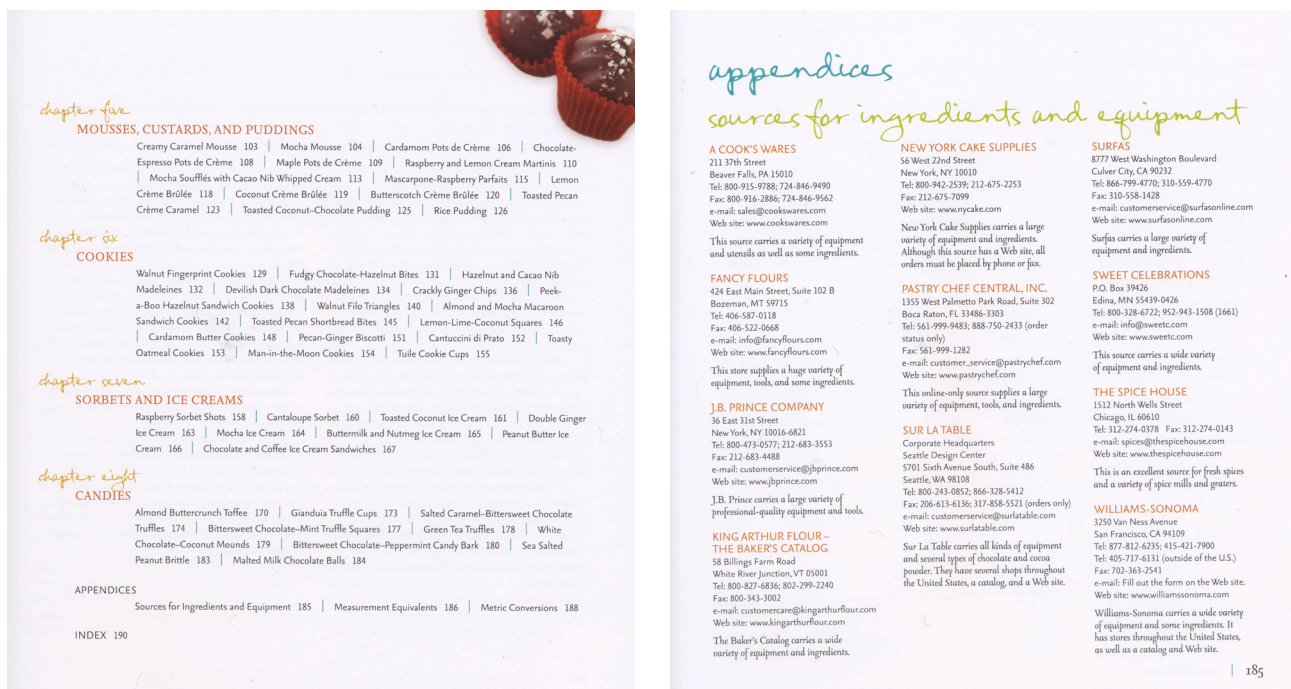 chapter five
MOUSSES, CUSTARDS, AND PUDDINGS
Creamy Caramel Mousse 103 | Mocha Mousse 104 | Cardamom Pots de Crème 106 | Chocolate-
Espresso Pots de Crème 108 | Maple Pots de Crème 109 | Raspberry and Lemon Cream Martinis 110
| Mocha Soufflés with Cacao Nib Whipped Cream 113 | Mascarpone-Raspberry Parfaits 115 | Lemon
Crème Brûlée 118 | Coconut Crème Brûlée 119 | Butterscotch Crème Brûlée 120 | Toasted Pecan
Crème Caramel 123 | Toasted Coconut–Chocolate Pudding 125 | Rice Pudding 126
chapter six
COOKIES
Walnut Fingerprint Cookies 129 | Fudgy Chocolate-Hazelnut Bites 131 | Hazelnut and Cacao Nib
Madeleines 132 | Devilish Dark Chocolate Madeleines 134 | Crackly Ginger Chips 136 | Peek-
a-Boo Hazelnut Sandwich Cookies 138 | Walnut Filo Triangles 140 | Almond and Mocha Macaroon
Sandwich Cookies 142 | Toasted Pecan Shortbread Bites 145 | Lemon-Lime-Coconut Squares 146
| Cardamom Butter Cookies 148 | Pecan-Ginger Biscotti 151 | Cantuccini di Prato 152 | Toasty
Oatmeal Cookies 153 | Man-in-the-Moon Cookies 154 | Tuile Cookie Cups 155
chapter seven
SORBETS AND ICE CREAMS
Raspberry Sorbet Shots 158 | Cantaloupe Sorbet 160 | Toasted Coconut Ice Cream 161 | Double Ginger
Ice Cream 163 | Mocha Ice Cream 164 | Buttermilk and Nutmeg Ice Cream 165 | Peanut Butter Ice
Cream 166 | Chocolate and Coffee Ice Cream Sandwiches 167
chapter eight
CANDIES
Almond Buttercrunch Toffee 170 | Gianduia Truffle Cups 173 | Salted Caramel–Bittersweet Chocolate
Truffles 174 | Bittersweet Chocolate–Mint Truffle Squares 177 | Green Tea Truffles 178 | White
Chocolate–Coconut Mounds 179 | Bittersweet Chocolate–Peppermint Candy Bark 180 | Sea Salted
Peanut Brittle 183 | Malted Milk Chocolate Balls 184
APPENDICES
Sources for Ingredients and Equipment 185 | Measurement Equivalents 186 | Metric Conversions 188
INDEX 190
appendices
sources for ingredients and equipment
A COOK'S WARES
211 37th Street
Beaver Falls, PA 15010
Tel: 800-915-9788; 724-846-9490
Fax: 800-916-2886; 724-846-9562
e-mail: sales@cookswares.com
Web site: www.cookswares.com
This source carries a variety of equipment
and utensils as well as some ingredients.
FANCY FLOURS
424 East Main Street, Suite 102 B
Bozeman, MT 59715
Tel: 406-587-0118
Fax: 406-522-0668
e-mail: info@fancyflours.com
Web site: www.fancyflours.com
This store supplies a huge variety of
equipment, tools, and some ingredients.
J.B. PRINCE COMPANY
36 East 31st Street
New York, NY 10016-6821
Tel: 800-473-0577; 212-683-3553
Fax: 212-683-4488
e-mail: customerservice@jbprince.com
Web site: www.jbprince.com
J.B. Prince carries a large variety of
professional-quality equipment and tools.
KING ARTHUR FLOUR –
THE BAKER'S CATALOG
58 Billings Farm Road
White River Junction, VT 05001
Tel: 800-827-6836; 802-299-2240
Fax: 800-343-3002
e-mail: customercare@kingarthurflour.com
Web site: www.kingarthurflour.com
The Baker's Catalog carries a wide
variety of equipment and ingredients.
NEW YORK CAKE SUPPLIES
56 West 22nd Street
New York, NY 10010
Tel: 800-942-2539; 212-675-2253
Fax: 212-675-7099
Web site: www.nycake.com
New York Cake Supplies carries a large
variety of equipment and ingredients.
Although this source has a Web site, all
orders must be placed by phone or fax.
PASTRY CHEF CENTRAL, INC.
1355 West Palmetto Park Road, Suite 302
Boca Raton, FL 33486-3303
Tel: 561-999-9483; 888-750-2433 (order
status only)
Fax: 561-999-1282
e-mail: customer_service@pastrychef.com
Web site: www.pastrychef.com
This online-only source supplies a large
variety of equipment, tools, and ingredients.
SUR LA TABLE
Corporate Headquarters
Seattle Design Center
5701 Sixth Avenue South, Suite 486
Seattle, WA 98108
Tel: 800-243-0852; 866-328-5412
Fax: 206-613-6136; 317-858-5521 (orders only)
e-mail: customerservice@surlatable.com
Web site: www.surlatable.com
Sur La Table carries all kinds of equipment
and several types of chocolate and cocoa
powder. They have several shops throughout
the United States, a catalog, and a Web site.
SURFAS
8777 West Washington Boulevard
Culver City, CA 90232
Tel: 866-799-4770; 310-559-4770
Fax: 310-558-1428
e-mail: customerservice@surfasonline.com
Web site: www.surfasonline.com
Surfas carries a large variety of
equipment and ingredients.
SWEET CELEBRATIONS
P.O. Box 39426
Edina, MN 55439-0426
Tel: 800-328-6722; 952-943-1508 (1661)
e-mail: info@sweetc.com
Web site: www.sweetc.com
This source carries a wide variety
of equipment and ingredients.
THE SPICE HOUSE
1512 North Wells Street
Chicago, IL 60610
Tel: 312-274-0378 Fax: 312-274-0143
e-mail: spices@thespicehouse.com
Web site: www.thespicehouse.com
This is an excellent source for fresh spices
and a variety of spice mills and graters.
WILLIAMS-SONOMA
3250 Van Ness Avenue
San Francisco, CA 94109
Tel: 877-812-6235; 415-421-7900
Tel: 405-717-6131 (outside of the U.S.)
Fax: 702-363-2541
e-mail: Fill out the form on the Web site.
Web site: www.williamssonoma.com
Williams-Sonoma carries a wide variety
of equipment and some ingredients. It
has stores throughout the United States,
as well as a catalog and Web site.
| 185